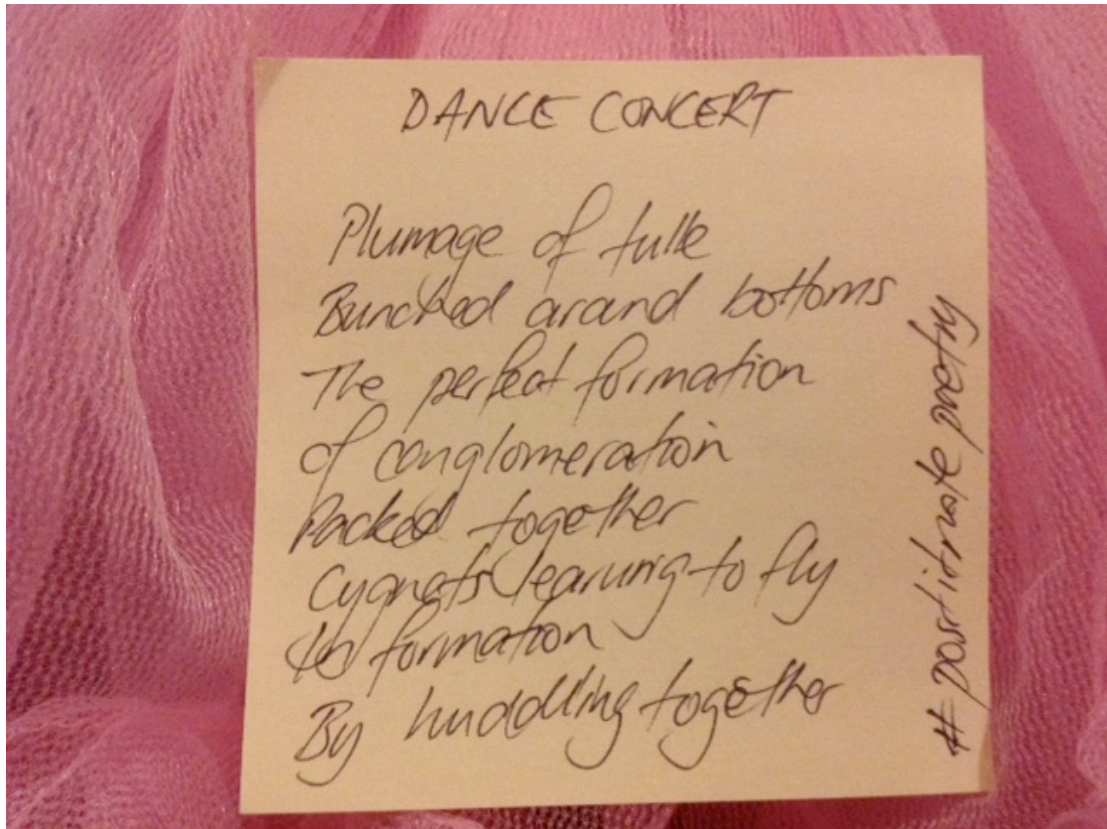 DANCE CONCERT
Plumage of tulle
Bunched around bottoms
The perfect formation
of conglomeration
Packed together
Cygnets learning to fly
In formation
By huddling together
# postitnote poetry